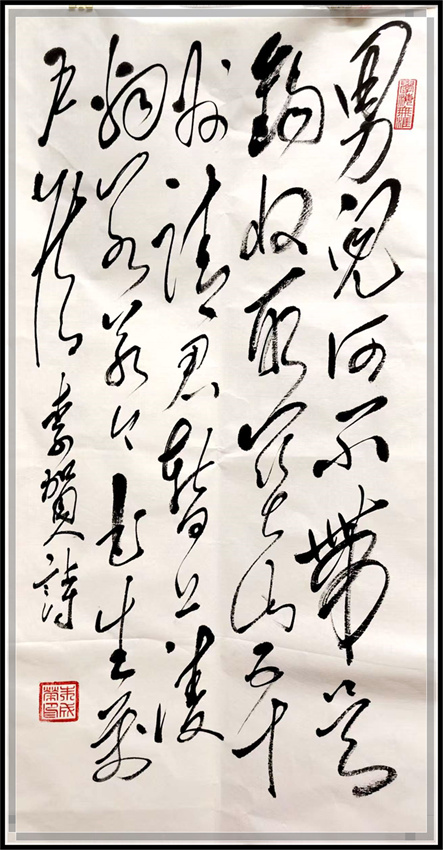 男兒何不帶吳
鈎收取关山五十
州請君暫上凌
烟閣若个書生萬
户侯
李賀詩